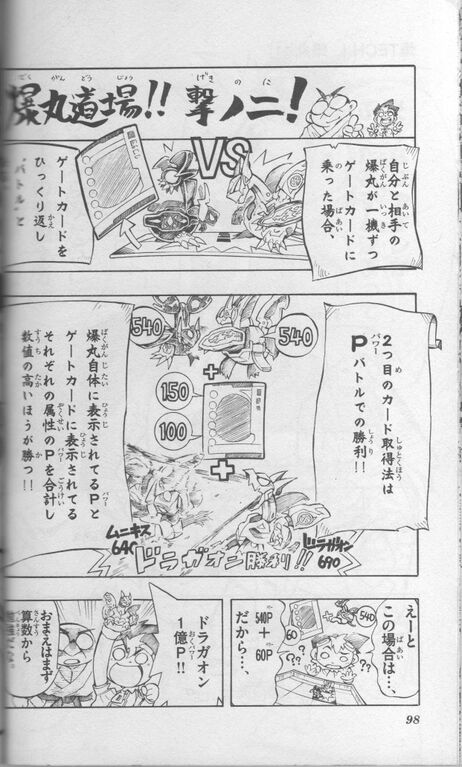 爆丸道場!! 撃ノ二!
自分と相手の
爆丸が一機ずつ
ゲートカードに
乗った場合、
VS
ゲートカードを
ひっくり返し
2つ目のカード取得法は
Pバトルでの
勝利!!
540
540
+
150
100
+
爆丸自体に表示されてるPと
ゲートカードに表示されてる
それぞれの属性のPを合計し
数値の高いほうが勝つ!!
ドラガオン
690
ムニキス
640
ドラガオン勝利!!
えーと
この場合は…、
540
60
??
??
540P
+
60P
だから…、
ドラガオン
1億P!!
おまえはまず
算数から
98